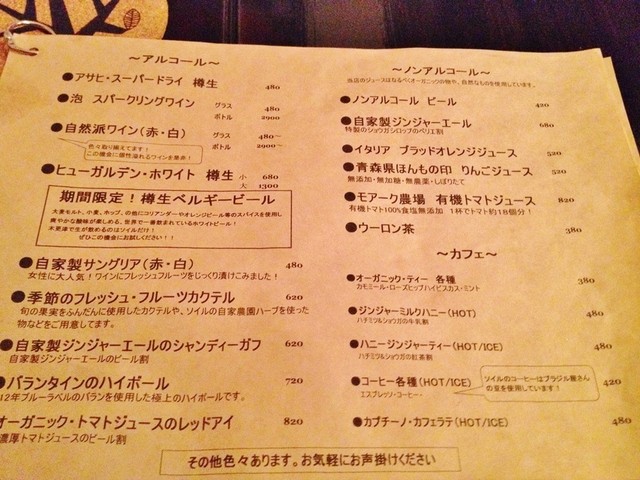 ～アルコール～
●アサヒ・スーパードライ 樽生 480
●泡 スパークリングワイン グラス 480
ボトル 2900
●自然派ワイン(赤・白) グラス 480～
ボトル 2900～
色々取り揃えてます!
この機会に個性溢れるワインを是非!
●ヒューガルデン・ホワイト 樽生 小 680
大 1300
期間限定!樽生ベルギービール
大麦モルト、小麦、ホップ、の他にコリアンダーやオレンジピール等のスパイスを使用し
爽やかな酸味が楽しめる、世界で一番飲まれているホワイトビール!
木更津で生が飲めるのはソイルだけ!
ぜひこの機会にお試しください!!
●自家製サングリア(赤・白) 480
女性に大人気!ワインにフレッシュフルーツをじっくり漬けこみました!
●季節のフレッシュ・フルーツカクテル 620
旬の果実をふんだんに使用したカクテルや、ソイルの自家農園ハーブを使った
物などをご用意してます。
●自家製ジンジャーエールのシャンディーガフ 620
自家製ジンジャーエールのビール割
●バランタインのハイボール 720
12年ブルーラベルのバランを使用した極上のハイボールです。
オーガニック・トマトジュースのレッドアイ 820
濃厚トマトジュースのビール割
～ノンアルコール～
当店のジュースはなるべくオーガニックの物や、自然なものを使用しています。
●ノンアルコール ビール 420
●自家製ジンジャーエール 680
特製のショウガシロップのペリエ割
●イタリア ブラッドオレンジジュース 520
●青森県ほんもの印 りんごジュース 520
無添加・無加糖・無農薬・しぼりたて
●モアーク農場 有機トマトジュース 820
有機トマト100%食塩無添加 1杯でトマト約18個分!
●ウーロン茶 380
～カフェ～
●オーガニック・ティー 各種 380
カモミール・ローズヒップハイビスカス・ミント
●ジンジャーミルクハニー(HOT) 480
ハチミツ&ショウガの牛乳割
●ハニージンジャーティー(HOT/ICE) 480
ハチミツ&ショウガの紅茶割
●コーヒー各種(HOT/ICE) 420
エスプレッソ・コーヒー・
ソイルのコーヒーはブラジル屋さん
の豆を使用しています!
●カプチーノ・カフェラテ(HOT/ICE) 480
その他色々あります。お気軽にお声掛けください